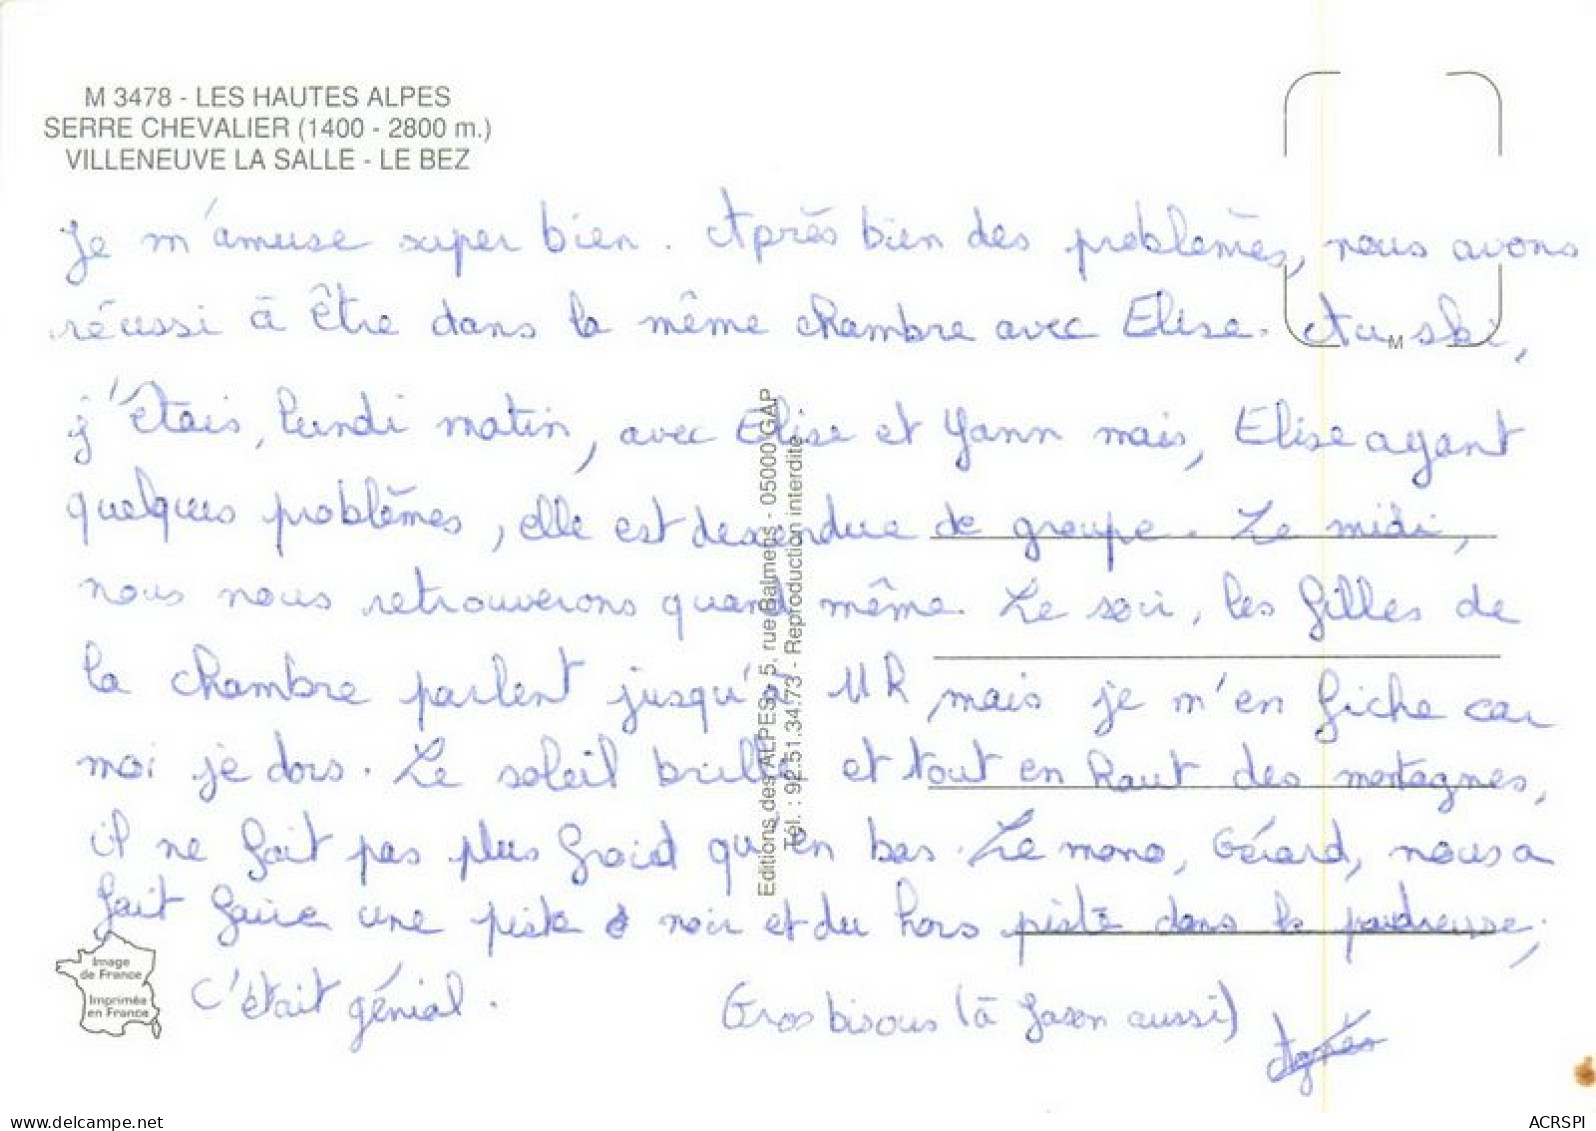 M 3478 - LES HAUTES ALPES
SERRE CHEVALIER (1400 - 2800 m.)
VILLENEUVE LA SALLE - LE BEZ
Je m'amuse super bien. Après bien des problèmes, nous avons
réussi à être dans la même chambre avec Elise. Au ski,
M
j'étais, lundi matin, avec Elise et Yann mais, Elise ayant
quelques problèmes, elle est descendue de groupe. Le midi,
nous nous retrouverons quand même. Le soir, les filles de
la chambre parlent jusqu'à 11h, mais je m'en fiche car
moi je dors. Le soleil brille et tout en haut des montagnes,
il ne fait pas plus froid qu'en bas. Le mono, Gérard, nous a
fait faire une piste noir et du hors piste dans la poudreuse,
c'était génial.
Gros bisous (à Jason aussi)
Agnès
Editions des ALPES - 5, rue Balmens - 05000 GAP
Tél. : 92.51.34.73 - Reproduction interdite
Image
de France
Imprimée
en France
www.delcampe.net
ACRSPI